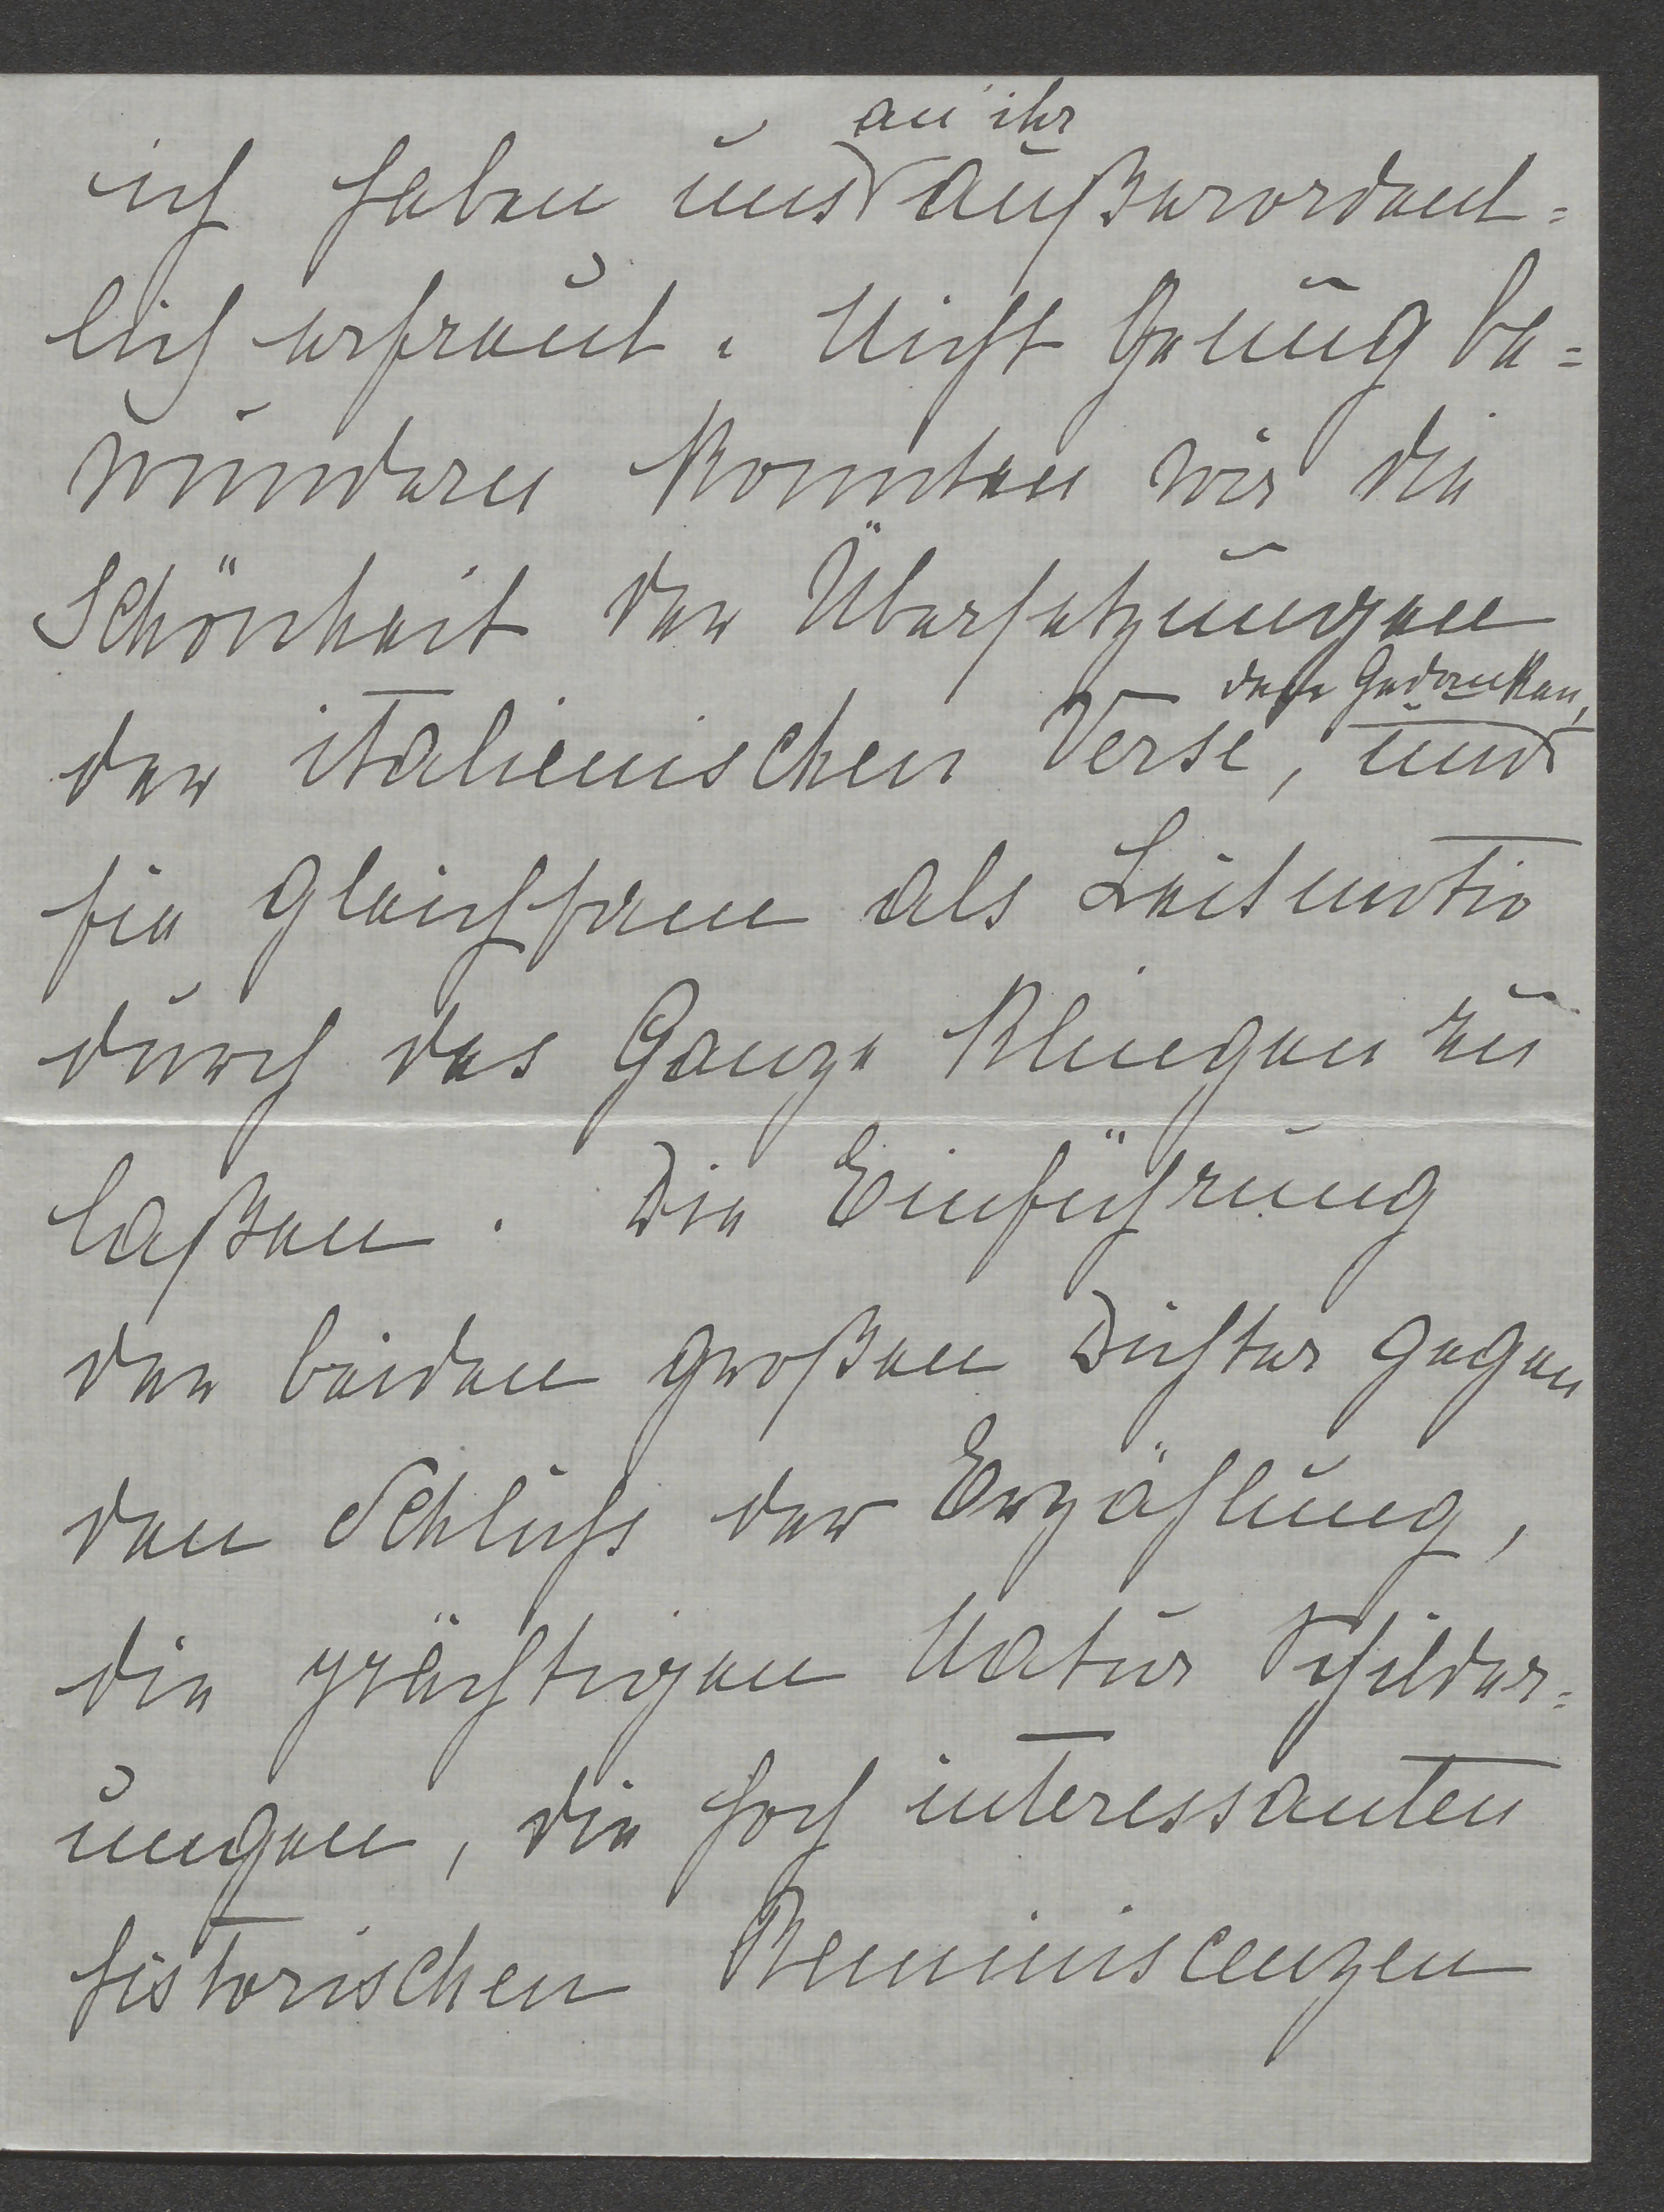 ich haben uns an ihr außerordent=
lich erfreut. Nicht Genug be=
wundern konnten wir die
Schönheit der Übersetzungen
der italienischen Verse, und den Gedanken,
sie gleichsam als Leitmotiv
durch das Ganze klingen zu
laßen. Die Einführung
der beiden großen Dichter gegen
den Schluß der Erzählung,
die prächtigen Natur Schilder=
ungen, die hoch interessanten
historischen Reminiscenzen